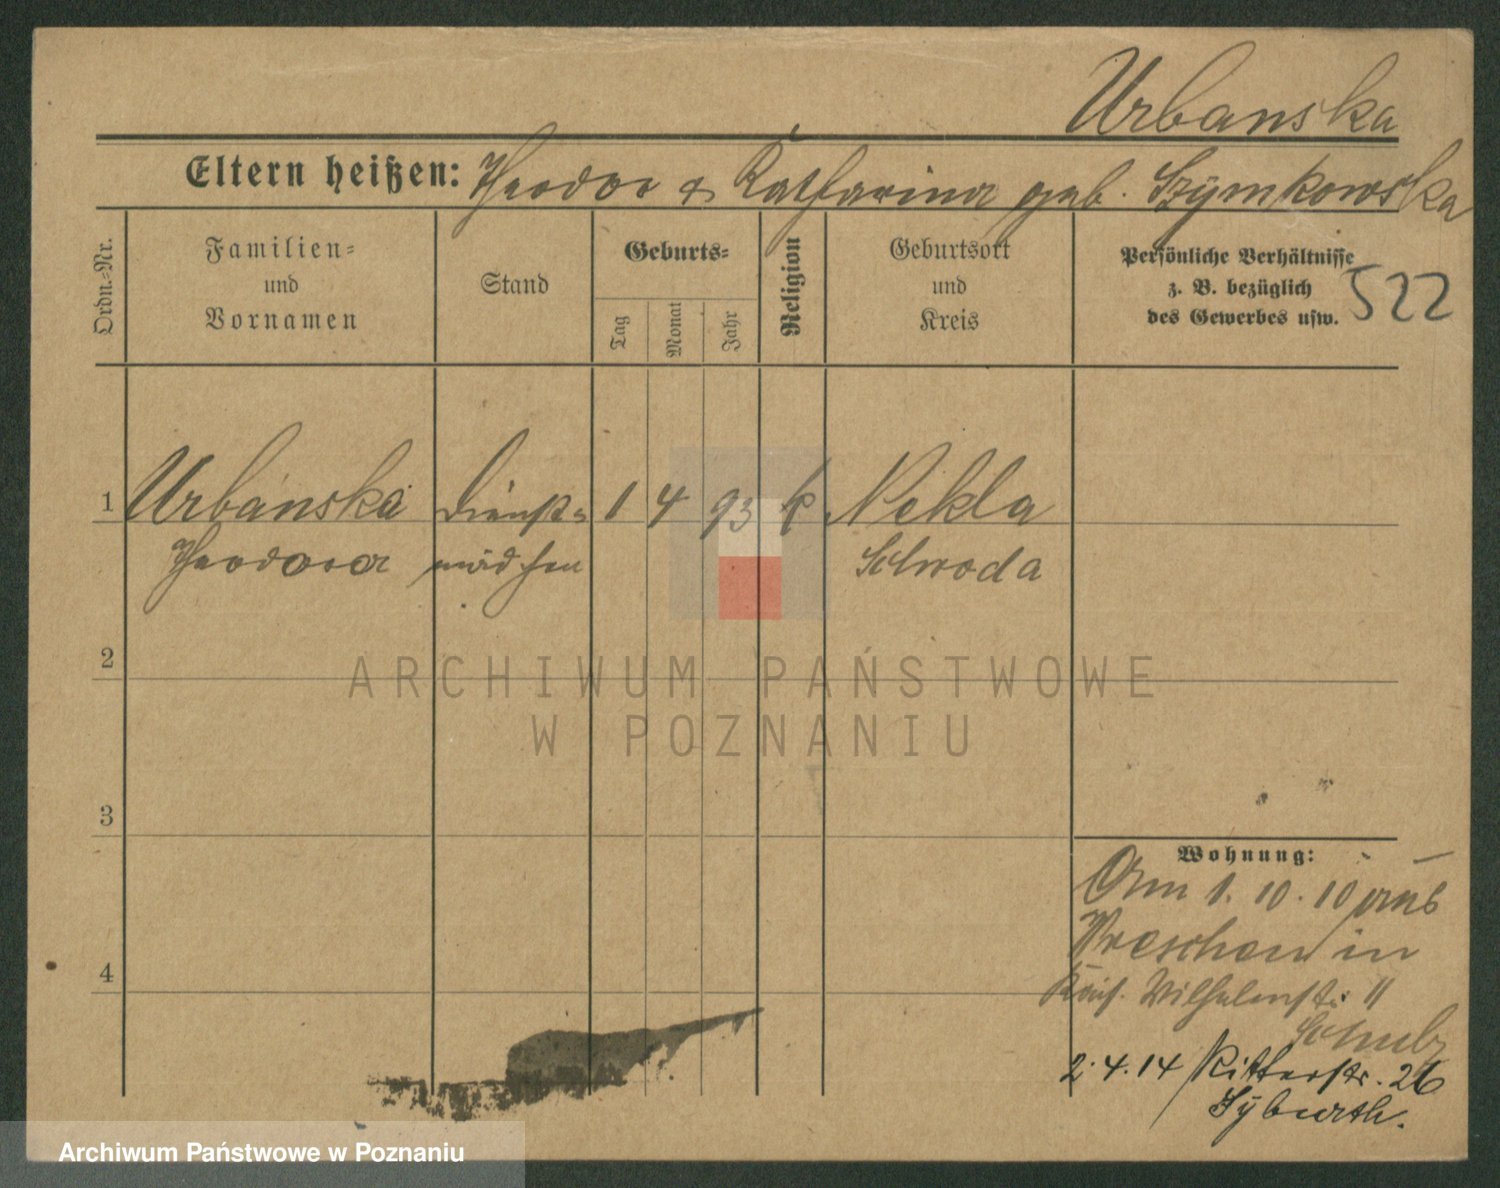 Urbanska
Eltern heißen: Theodor & Katharina geb. Szymkowska
Ordn.=Nr.
Familien=
und
Vornamen
Stand
Geburts=
Tag
Monat
Jahr
Religion
Geburtsort
und
Kreis
Persönliche Verhältnisse
z. B. bezüglich
des Gewerbes usw.
522
1 Urbanska Dienst= 1 4 93 k Nekla
Theodora mädchen Schroda
2
3
4
Wohnung:
Am 1. 10. 10 aus
Wreschen in
Kais. Wilhelmstr. 11
Schulz
2.4.14 Ritterstr. 26
Syburth.
ARCHIWUM PAŃSTWOWE
W POZNANIU
Archiwum Państwowe w Poznaniu